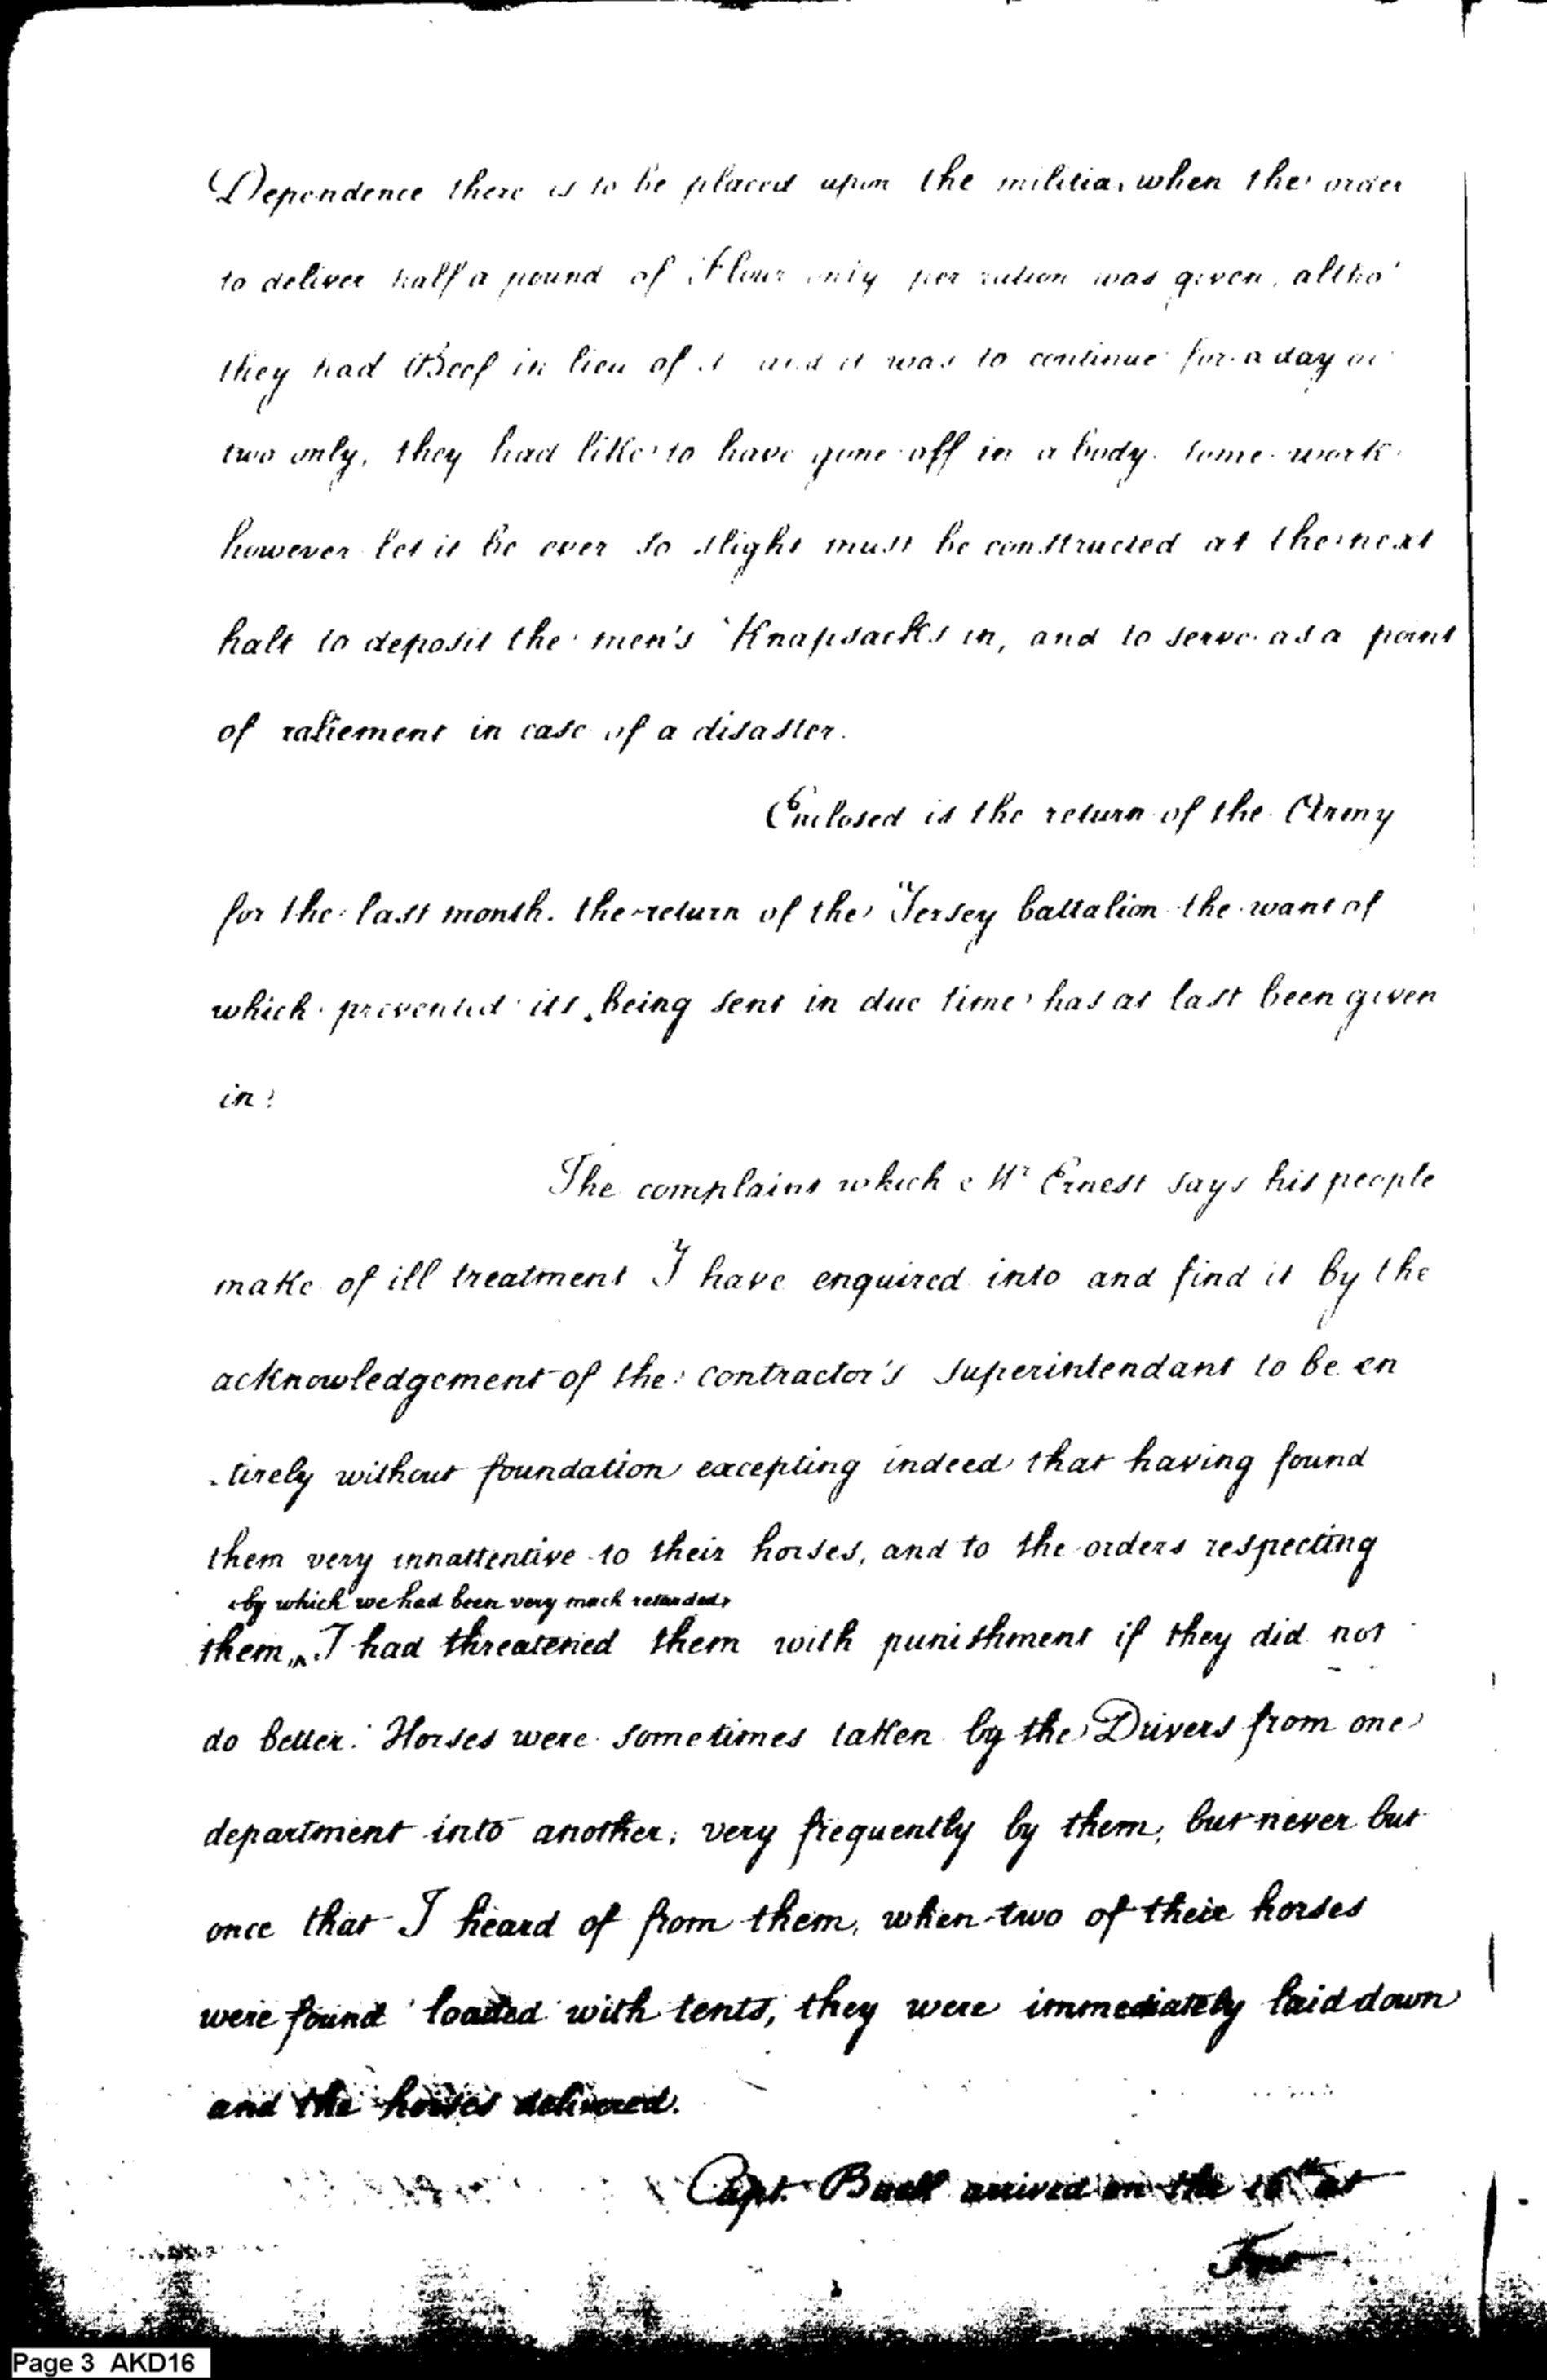 Dependence there is to be placed upon the militia, when the order
to deliver half a pound of Flour only per ration was given, altho'
they had Beef in lieu of it and it was to continue for a day or
two only, they had like to have gone off in a body. some work
however let it be ever so slight must be constructed at the next
halt to deposit the men's Knapsacks in, and to serve as a point
of raliement in case of a disaster.
Enclosed is the return of the Army
for the last month. the return of the Jersey battalion the want of
which prevented its being sent in due time has at last been given
in.
The complaint which Mr Ernest says his people
make of ill treatment I have enquired into and find it by the
acknowledgement of the contractor's superintendant to be en
-tirely without foundation excepting indeed that having found
them very innattentive to their horses, and to the orders respecting
by which we had been very much retarded,
them, I had threatened them with punishment if they did not
do better. Horses were sometimes taken by the Drivers from one
department into another, very frequently by them, but never but
once that I heard of from them, when two of their horses
were found loaded with tents, they were immediately laid down
and the horses delivered.
Capt. Buell arrived on the 10th at
Fort
Page 3 AKD16